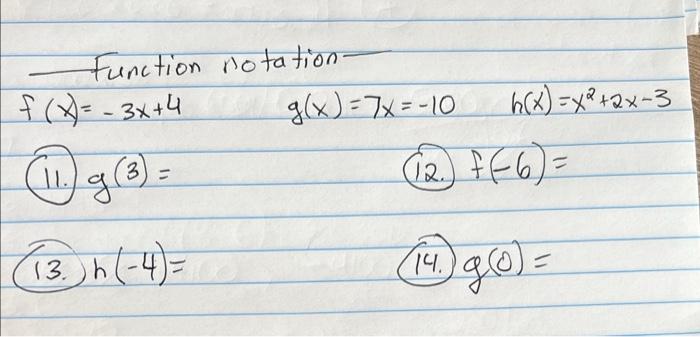 Function notation
f(x)= -3x+4 g(x)=7x=-10 h(x)=x²+2x-3
11. g(3)= 12. f(-6)=
13. h(-4)= 14. g(0)=